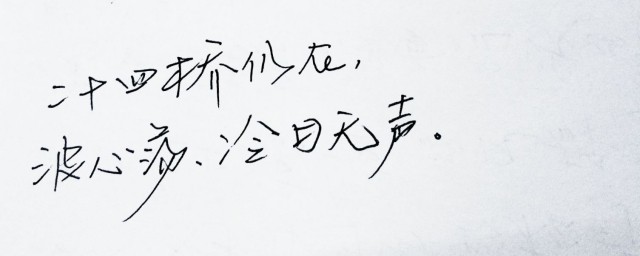 二十四桥仍在,
波心荡、冷日无声。